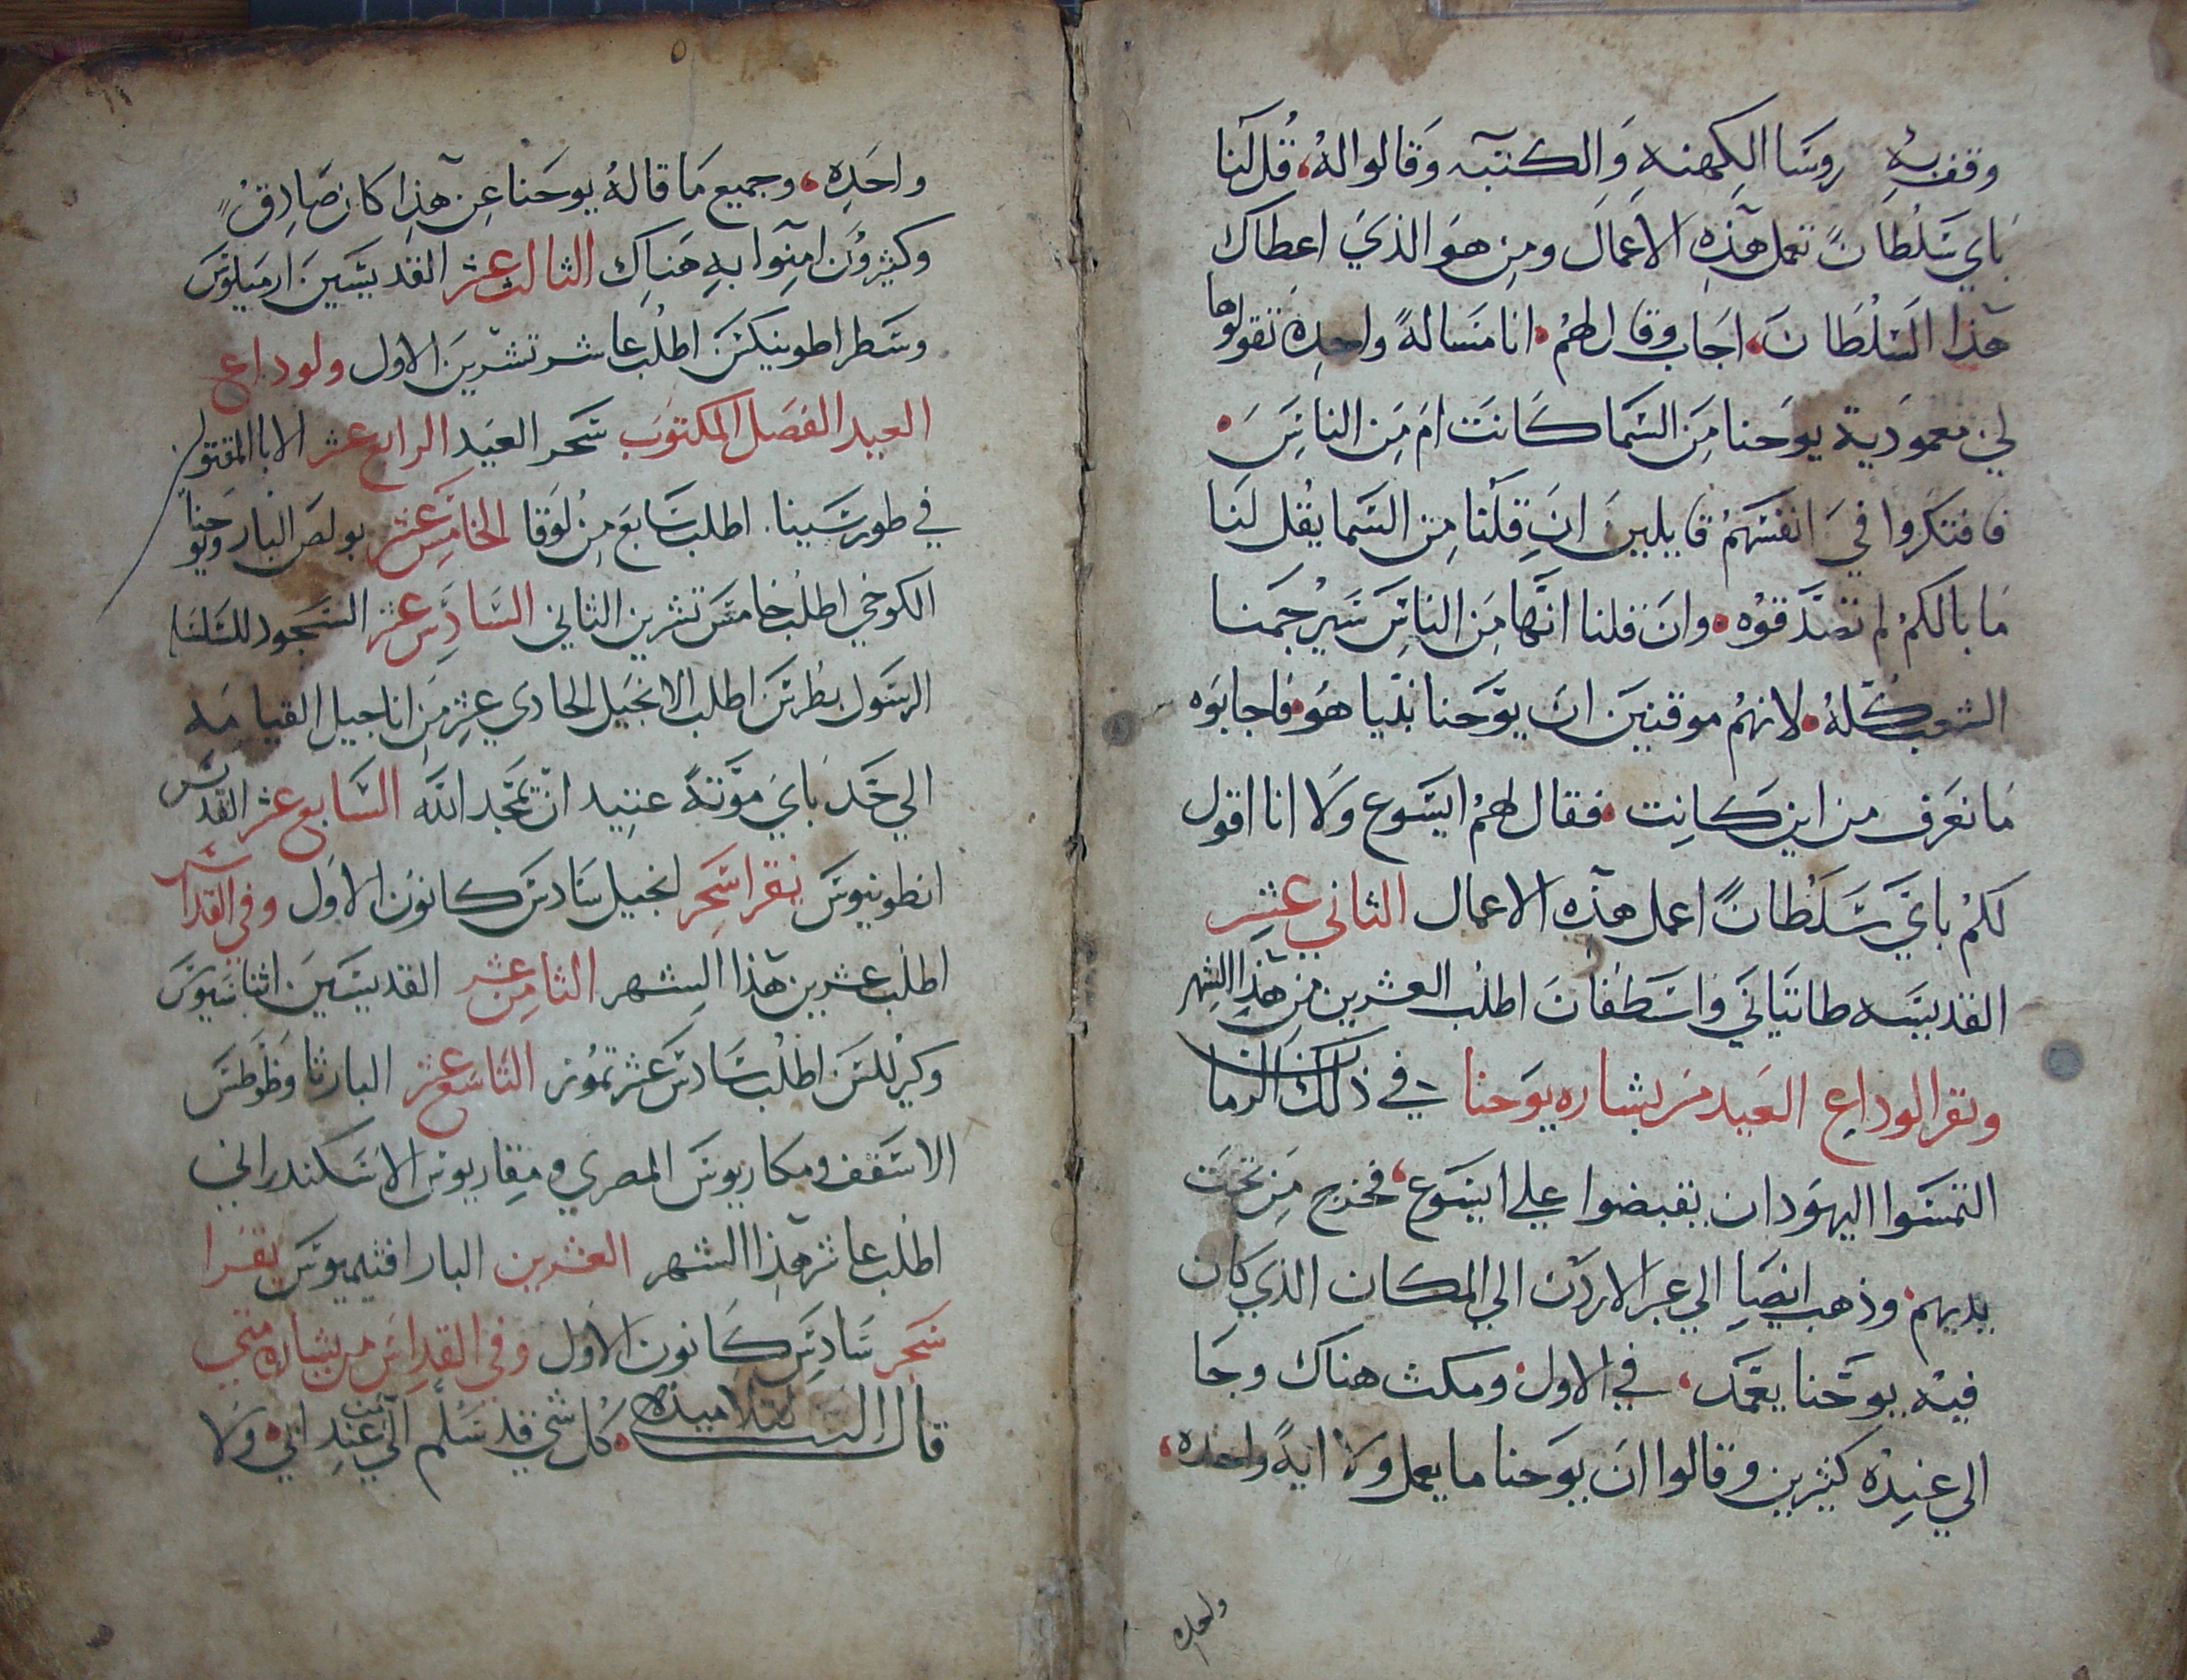 وقف به روسا الكهنه والكتبه وقالوا له، قل لنا
باي سلطان تعمل هذه الاعمال ومن هو الذي اعطاك
هذا السلطان، اجاب وقال لهم. انا مساله واحده تقولوها
لي معمودية يوحنا من السما كانت ام من الناس.
فافتكروا في انفسهم قايلين ان قلنا من السما يقل لنا
ما بالكم لم تصدقوه. وان قلنا انها من الناس سيرجمنا
الشعب كله. لانهم موقنين ان يوحنا نبيا هو. فاجابوه
ما نعرف من اين كانت. فقال لهم ايسوع ولا انا اقول
لكم باي سلطان اعمل هذه الاعمال الثاني عشر
القديسه طاتياني واسطفان اطلب العشرين من هذا الشهر
وتقرا لوداع العيد من بشاره يوحنا في ذلك الزمان
التمسوا اليهود ان يقبضوا علي ايسوع، فخرج من تحت
يديهم. وذهب ايضا الي عبر الاردن الي المكان الذي كان
فيه يوحنا يعمد، في الاول. ومكث هناك وجا
الي عنده كثيرين وقالوا ان يوحنا ما يعمل ولا ايه واحده،
واحده
واحده، وجميع ما قاله يوحنا عن هذا كان صادق
وكثيرون امنوا به هناك الثالث عشر القديسين ارميلوس
وسطراطونيكس اطلب عاشر تشرين الاول ولوداع
العيد الفصل المكتوب سحر العيد الرابع عشر الابا المقتولين
في طور سينا. اطلب سابع من لوقا الخامس عشر بولص البار ويوحنا
الكوخي اطلب خامس تشرين الثاني السادس عشر السجود للسلسلة
الرسول بطرس اطلب الانجيل الحادي عشر من اناجيل القيامه
الي حد باي موته عتيد ان يمجد الله السابع عشر القديس
انطونيوس يقرا سحر انجيل سادس كانون الاول وفي القداس
اطلب عشرين هذا الشهر الثامن عشر القديسين اثناسيوس
وكيرللس اطلب سادس عشر تموز التاسع عشر البار ثاوظوطس
الاسقف ومكاريوس المصري ومقاريوس الاسكندراني
اطلب عاشر هذا الشهر العشرين البار افثيميوس يقرا
سحر سادس كانون الاول وفي القداس من بشاره متي
قال الرب لتلاميذه. كل شي قد سلم الي من عند ابي. ولا